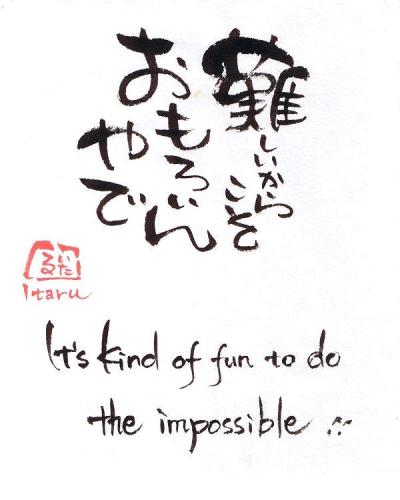 難しいからこそ
おもろいん
やで
いた
る
Itaru
It's kind of fun to do
the impossible